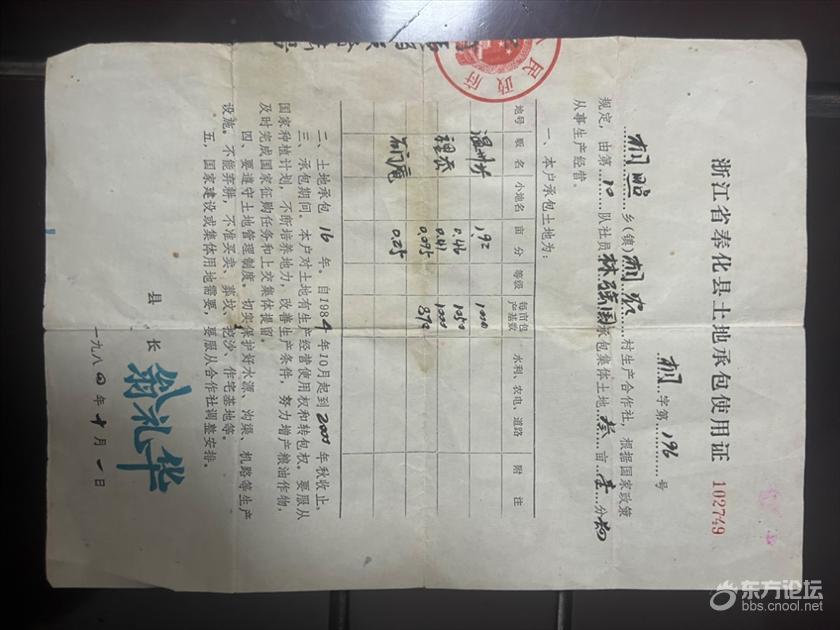 浙江省奉化县土地承包使用证 102749
桐字第196号
桐照乡(镇)桐农村生产合作社,根据国家政策
规定,由第10队社员林强国承包集体土地叁亩壹分
从事生产经营。
一、本户承包土地为:
地号 畈名 小地名 亩分 等级 每亩包产基数 水利、农电、道路 附注
1.92 1000
0.46 1050
0.41 1000
0.095 870
0.25
二、土地承包16年。自1984年10月起到2000年秋收止。
三、承包期间。本户对土地有生产经营使用权和转包权。要服从
国家种植计划,不断培养地力,改善生产条件,努力增产粮油作物,
及时完成国家征购任务和上交集体提留。
四、要遵守土地管理制度。切实保护好水源、沟渠、机路等生产
设施。不能弃耕,不准买卖、葬坟、挖沙、作宅基地等。
五、国家建设或集体用地需要,要服从合作社调整安排。
县长 翁礼华
一九八四年十月一日
民政府
东方论坛
bbs.cnool.net